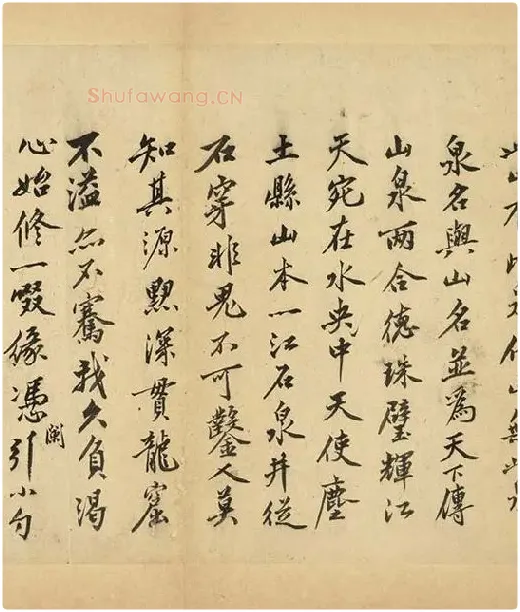 Shufawang.CN
泉名與山名並為天下傳
山泉兩合德珠璧輝江
天宛在水央中天使塵
土縣山本一江石泉井從
石穿非鬼不可鑿人莫
知其源黙深貫龍窟
不溢亦不騫我久負渴
心始修一啜緣憑闌引小勺